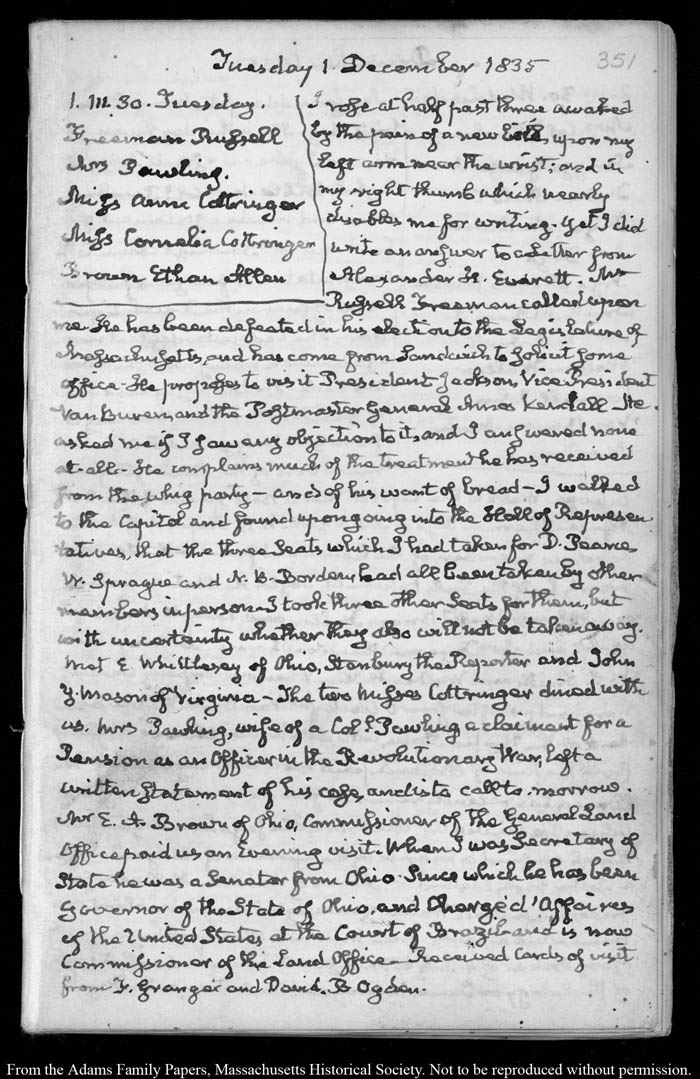 Tuesday 1. December 1835
351
1. III. 30. Tuesday.
Freeman Russell
Mrs Pawling.
Miss Anne Cottringer
Miss Cornelia Cottringer
Brown Ethan Allen
I rose at half past three awaked
by the pain of a new boil, upon my
left arm near the wrist; and in
my right thumb which nearly
disables me for writing. Yet I did
write an answer to a Letter from
Alexander H. Everett. Mr
Russell Freeman called upon
me. He has been defeated in his election to the Legislature of
Massachusetts, and has come from Sandwich to solicit some
office. He proposes to visit President Jackson, Vice President
Van Buren, and the Postmaster General Amos Kendall. He
asked me if I saw any objection to it, and I answered none
at all. He complains much of the treatment he has received
from the whig party — and of his want of bread — I walked
to the Capitol and found upon going into the Hall of Represen
tatives, that the three Seats which I had taken for D. Pearce,
W. Sprague and N. B. Borden, had all been taken by other
members in person. I took three other Seats for them, but
with uncertainty whether they also will not be taken away.
Met E. Whittlesey of Ohio, Stanbury the Reporter and John
Y. Mason of Virginia — The two Misses Cottringer dined with
us. Mrs Pawling, wife of a Coll. Pawling, a claimant for a
Pension as an Officer in the Revolutionary War, left a
written statement of his case, and is to call to-morrow.
Mr E. A. Brown of Ohio, Commissioner of the General Land
Office paid us an Evening visit. When I was Secretary of
State he was a Senator from Ohio. Since which he has been
Governor of the State of Ohio, and Chargé d'Affaires
of the United States at the Court of Brazil and is now
Commissioner of the Land Office — Received Cards of visit
from F. Granger and David. B Ogden.
From the Adams Family Papers, Massachusetts Historical Society. Not to be reproduced without permission.